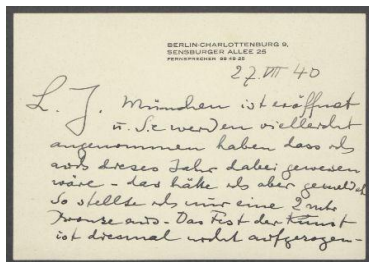 BERLIN-CHARLOTTENBURG 9,
SENSBURGER ALLEE 25
FERNSPRECHER 99 42 25
27 VII 40
L. J. München ist eröffnet
u. Sie werden vielleicht
angenommen haben dass ich
auch dieses Jahr dabei gewesen
wäre - das hätte ich aber gemeldet
So stellte ich nur eine 2 mtr
Bronze aus - Das Fest der Kunst
ist diesmal nicht aufgezogen -